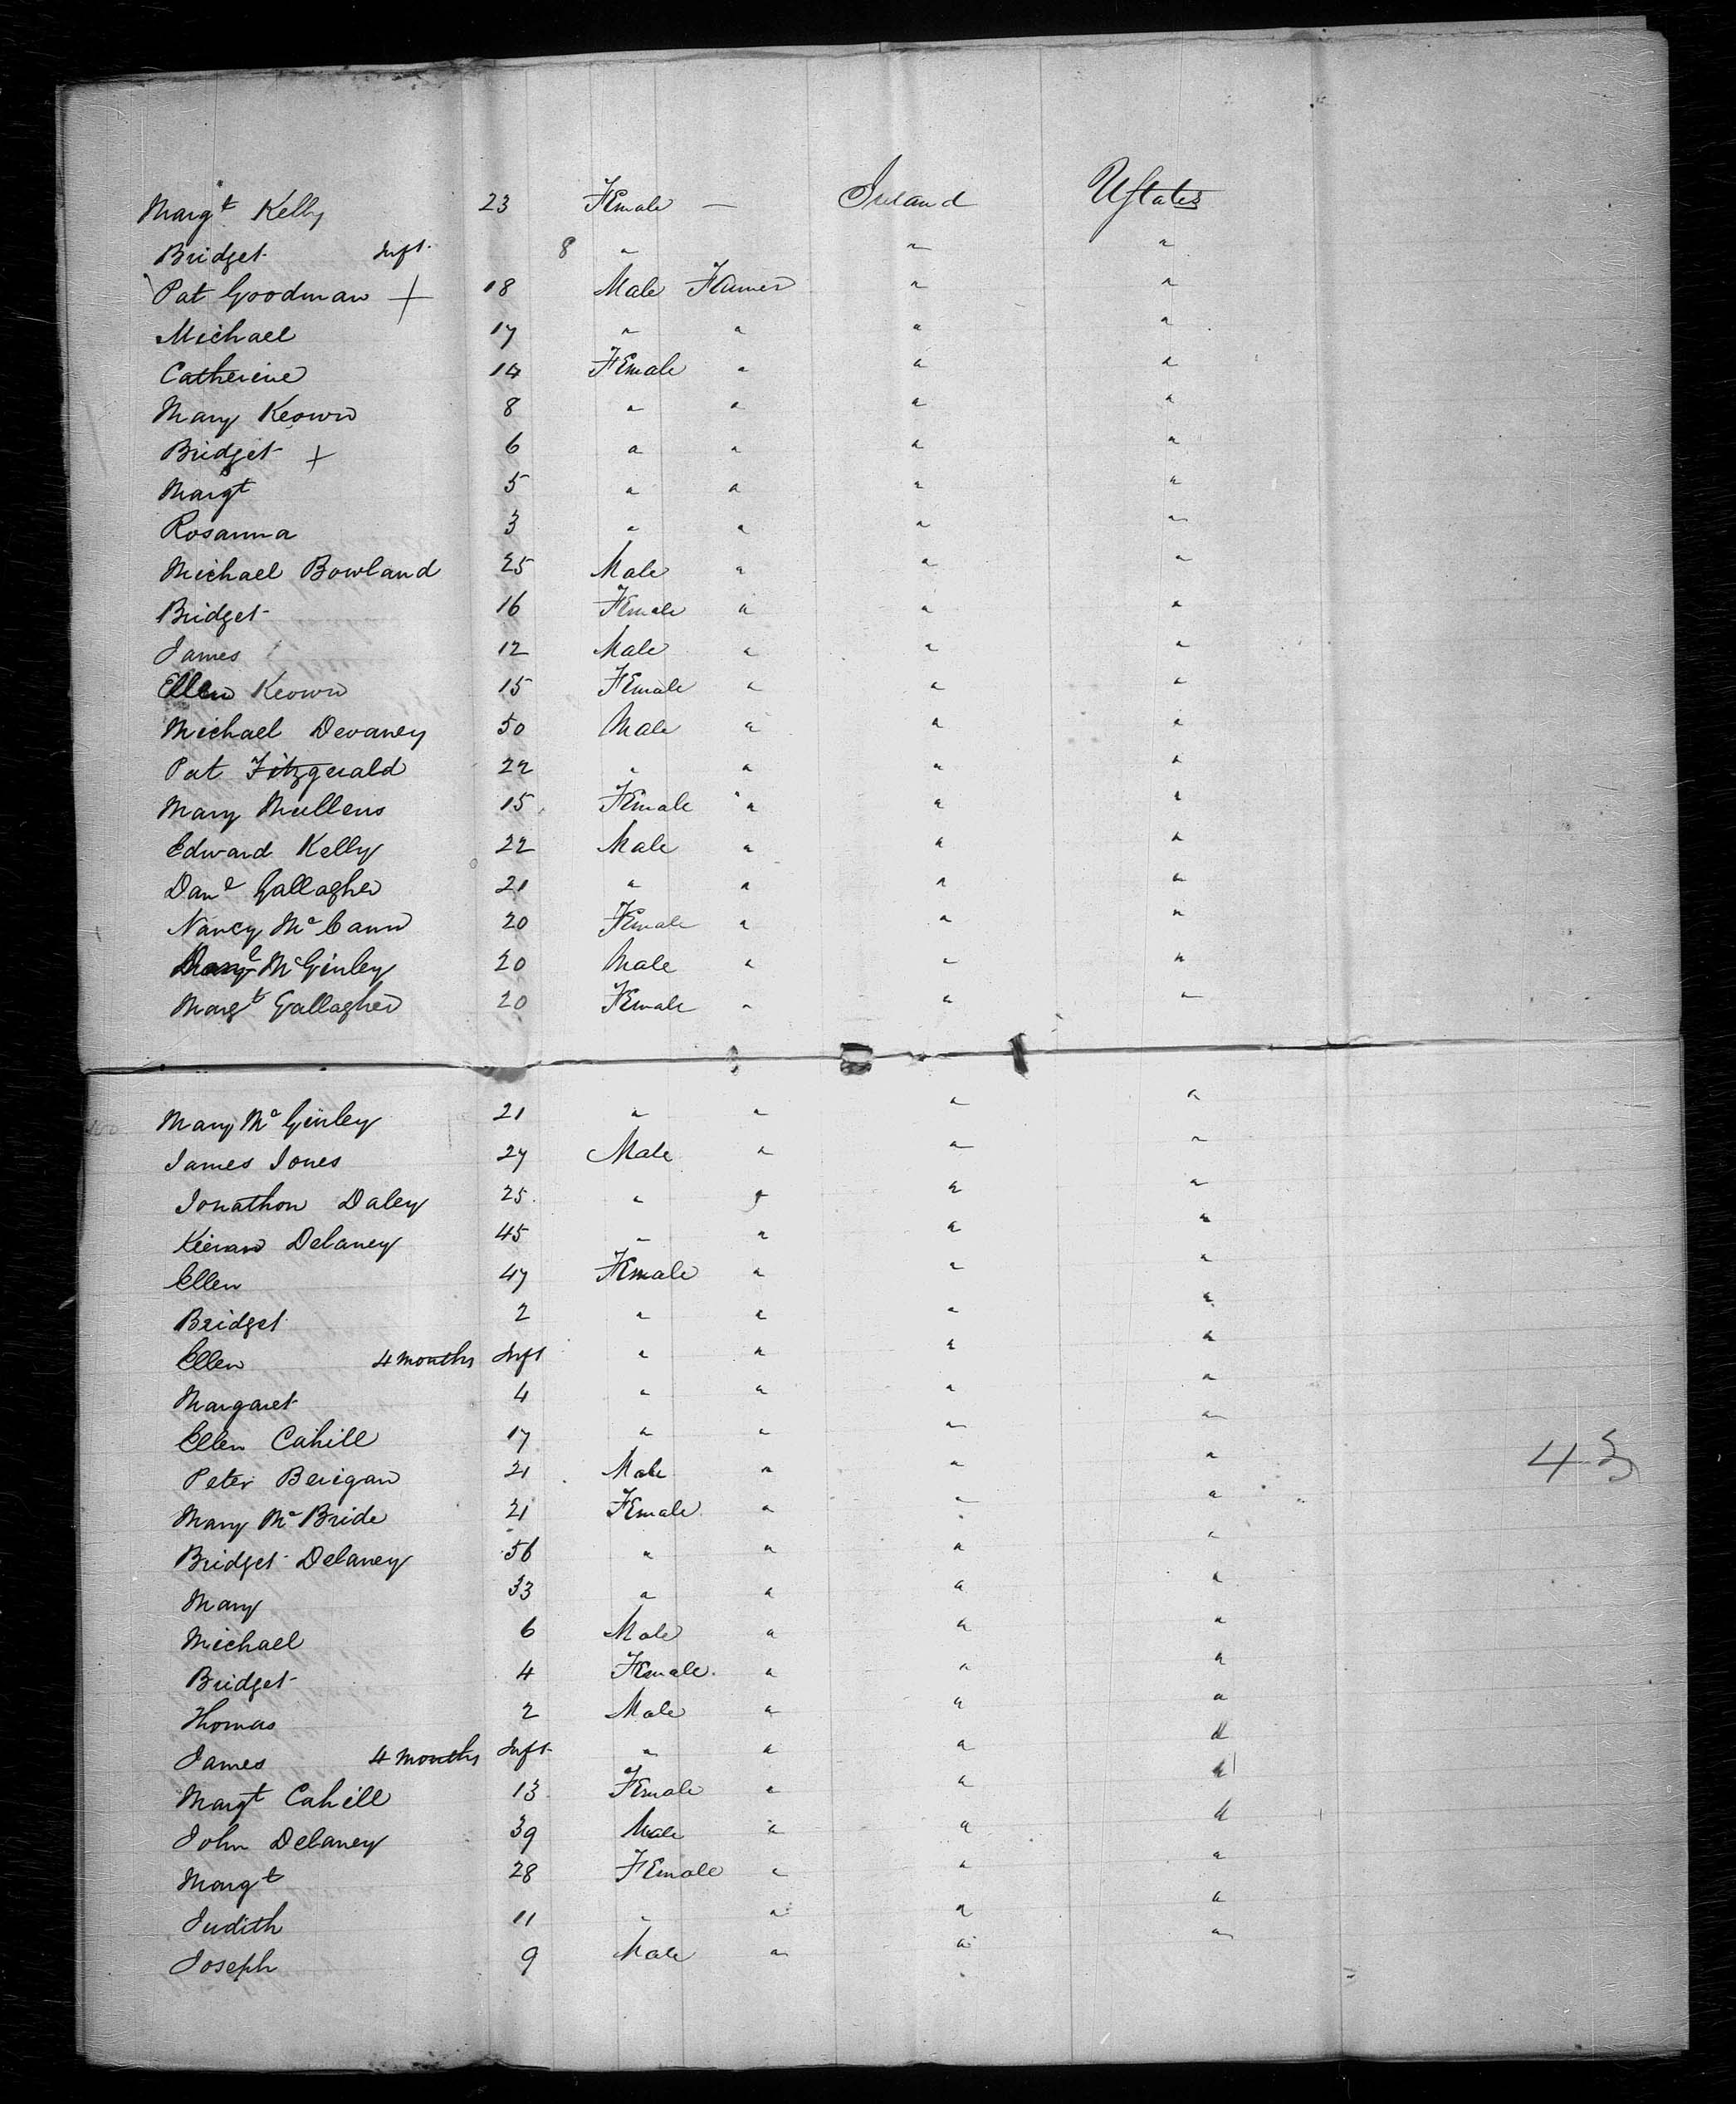 Margt Kelly 23 Female — Ireland UStates
Bridget Inft 8 " " "
Pat Goodman + 18 Male Farmer " "
Michael 17 " " " "
Catherine 14 Female " " "
Mary Keown 8 " " " "
Bridget + 6 " " " "
Margt 5 " " " "
Rosanna 3 " " " "
Michael Bowland 25 Male " " "
Bridget 16 Female " " "
James 12 Male " " "
Ellen Keown 15 Female " " "
Michael Devaney 50 Male " " "
Pat Fitzgerald 22 " " " "
Mary Mullens 15 Female " " "
Edward Kelly 22 Male " " "
Danl Gallagher 21 " " " "
Nancy McCann 20 Female " " "
Danl McGinley 20 Male " " "
Margt Gallagher 20 Female " " "
Mary McGinley 21 " " " "
James Jones 27 Male " " "
Jonathon Daley 25 " " " "
Kieran Delaney 45 " " " "
Ellen 47 Female " " "
Bridget 2 " " " "
Ellen 4 months Inft " " " "
Margaret 4 " " " "
Ellen Cahill 17 " " " "
Peter Berigan 21 Male " " "
Mary McBride 21 Female " " "
Bridget Delaney 56 " " " "
Mary 33 " " " "
Michael 6 Male " " "
Bridget 4 Female " " "
Thomas 2 Male " " "
James 4 months Inft " " " "
Margt Cahill 13 Female " " "
John Delaney 39 Male " " "
Margt 28 Female " " "
Judith 11 " " " "
Joseph 9 Male " " "
43